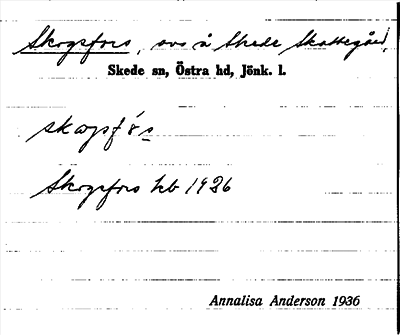 Skogsfors, avs å Skede Skattegård,
Skede sn, Östra hd, Jönk. l.
skogsfo̱s
Skogsfors kb 1926
Annalisa Anderson 1936